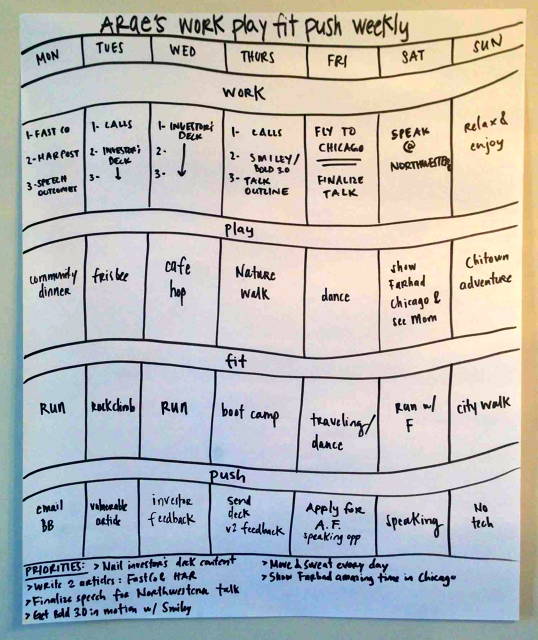 Arae's work play fit push weekly
MON TUES WED THURS FRI SAT SUN
WORK
1- FAST CO
2- HAR POST
3- SPEECH
OUTCOMES
1- CALLS
2- INVESTOR'S
DECK
3- ↓
1- INVESTOR'S
DECK
2-
3- ↓
1- CALLS
2- SMILEY/
BOLD 3.0
3- TALK
OUTLINE
FLY TO
CHICAGO
FINALIZE
TALK
SPEAK
@
NORTHWESTERN
relax &
enjoy
play
community
dinner
frisbee
cafe
hop
Nature
walk
dance
show
Farhad
Chicago &
see Mom
Chitown
adventure
fit
RUN
rockclimb
RUN
boot camp
traveling/
dance
Run w/
F
city walk
push
email
BB
vulnerable
article
investor
feedback
send
deck
v2 feedback
Apply for
A.F.
speaking opp
speaking
No
tech
PRIORITIES: > Nail investor's deck content
> Write 2 articles: FastCo & HAR
> Finalize speech for Northwestern talk
> Get Bold 3.0 in motion w/ Smiley
> Move & sweat every day
> Show Farhad amazing time in Chicago